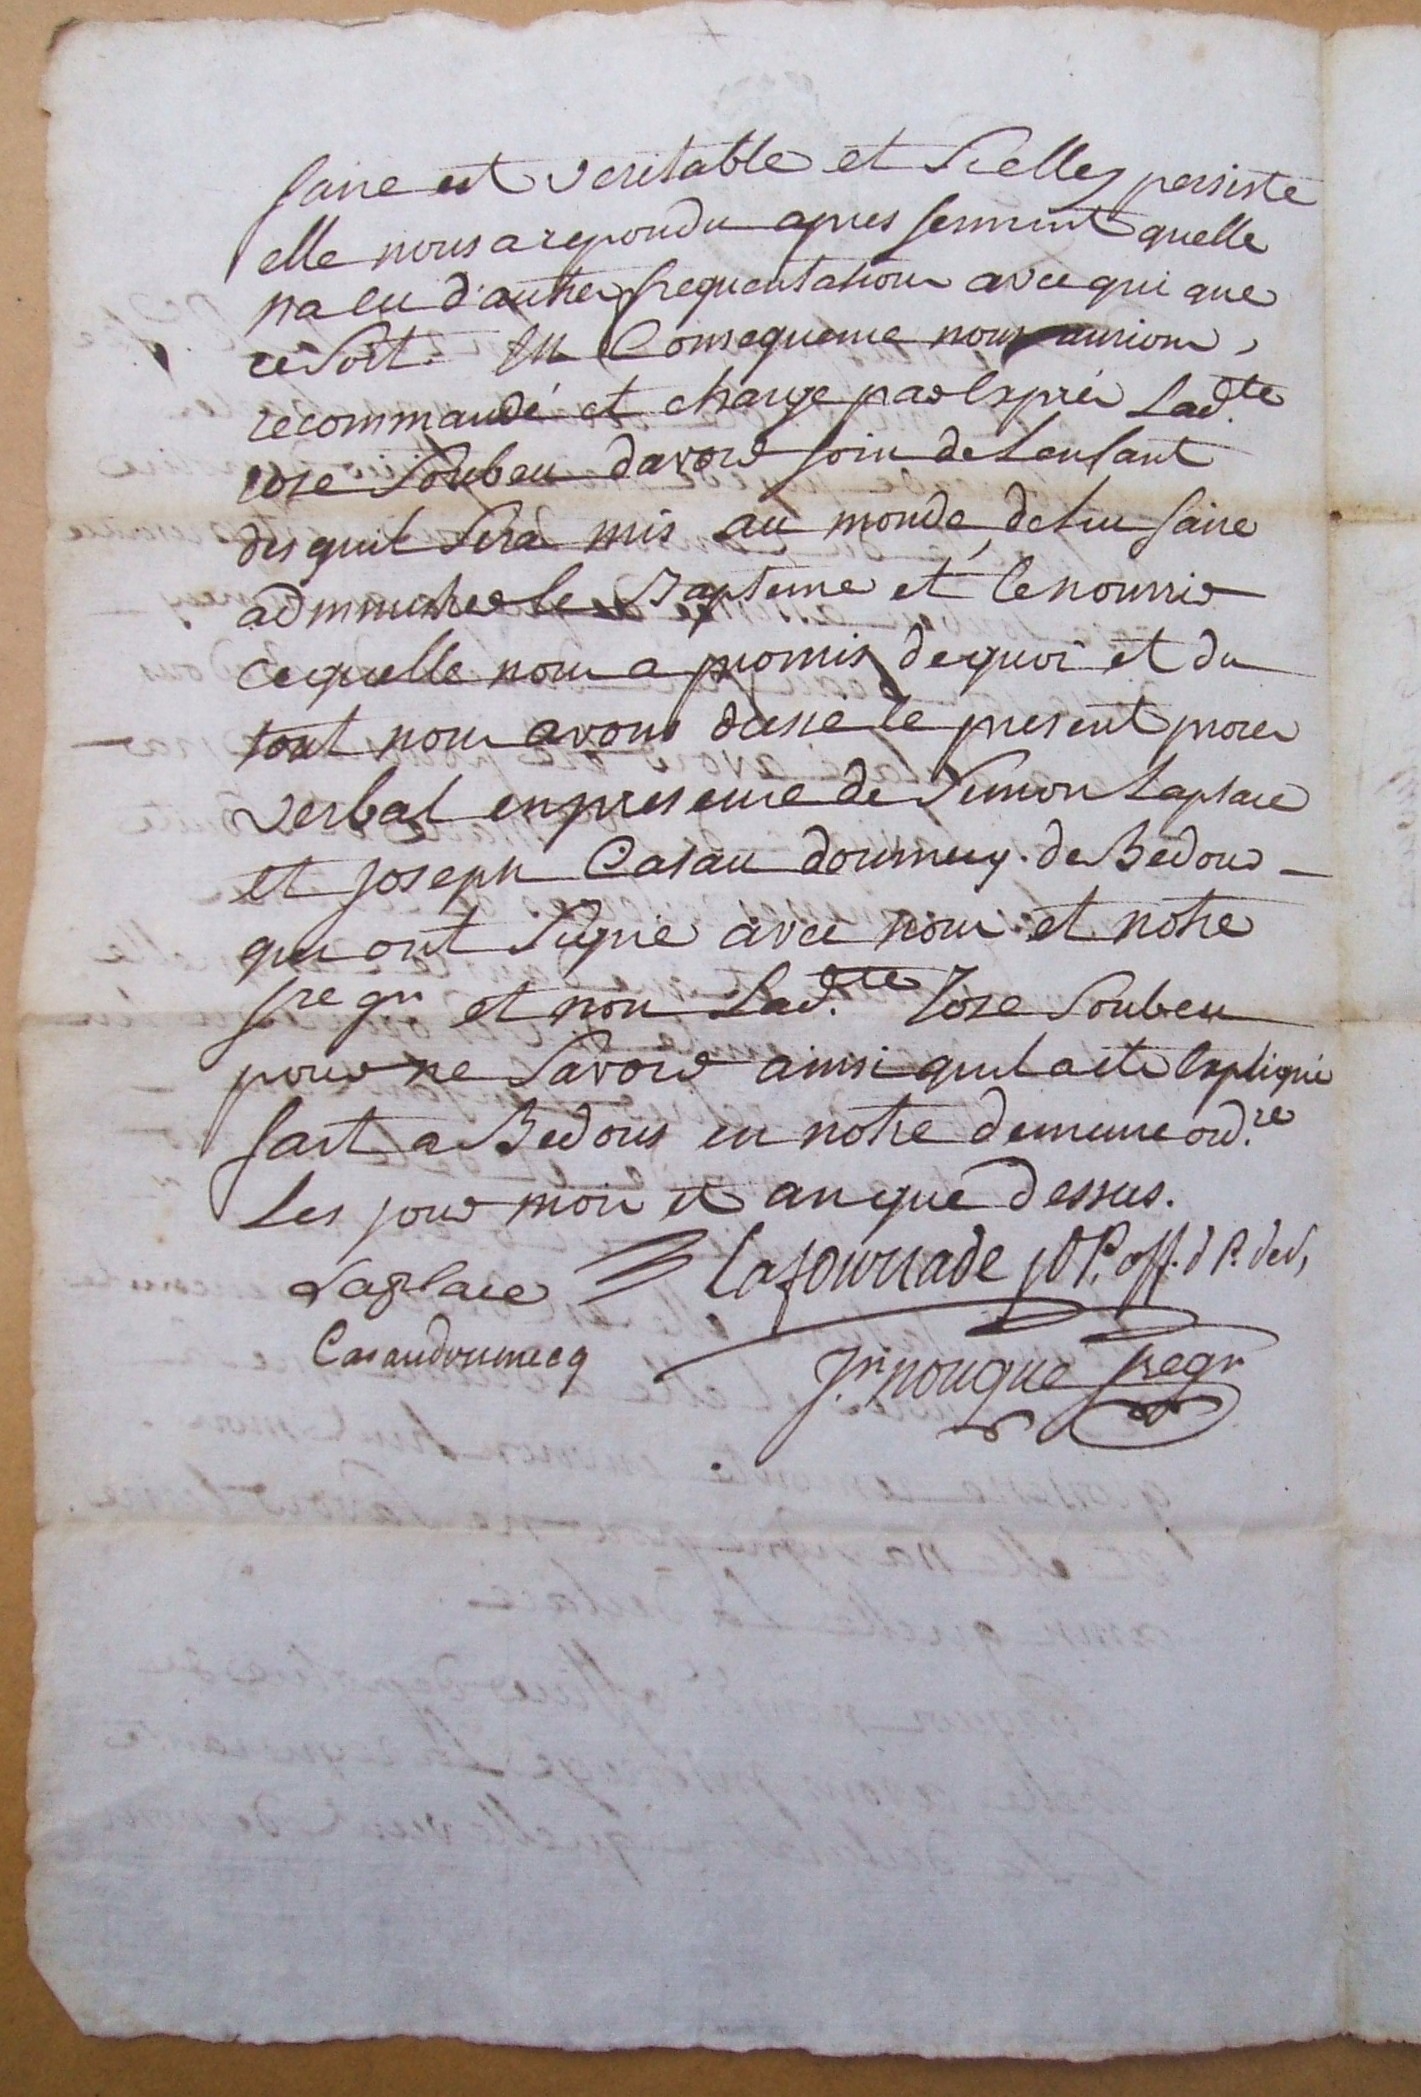 faire est veritable et si elle y persiste
elle nous a repondu apres serment quelle
na eu d'autre frequentation avec qui que
ce soit. En Consequence nous aurions
recommandé et charge par Exprès Lad.te
rose Soubeu davoir soin de Lenfant
des quil sera mis au monde, de luy faire
administrer le Bapteme et le nourrir
ce quelle nous a promis, de quoi et du
tout nous avons dressé le present proces
verbal en presence de Simon Laplace
et Joseph Casau doumecq. de Bedous
qui ont signé avec nous et notre
gre gr et non Lad.te Rose Soubeu
pour ne savoir ainsi quil a eté Expliqué
fait a Bedous en notre demeure ord.re
Les jour mois et an que dessus.
Laplace Lafourcade
Casaudoumecq
Jn. nougue gregr